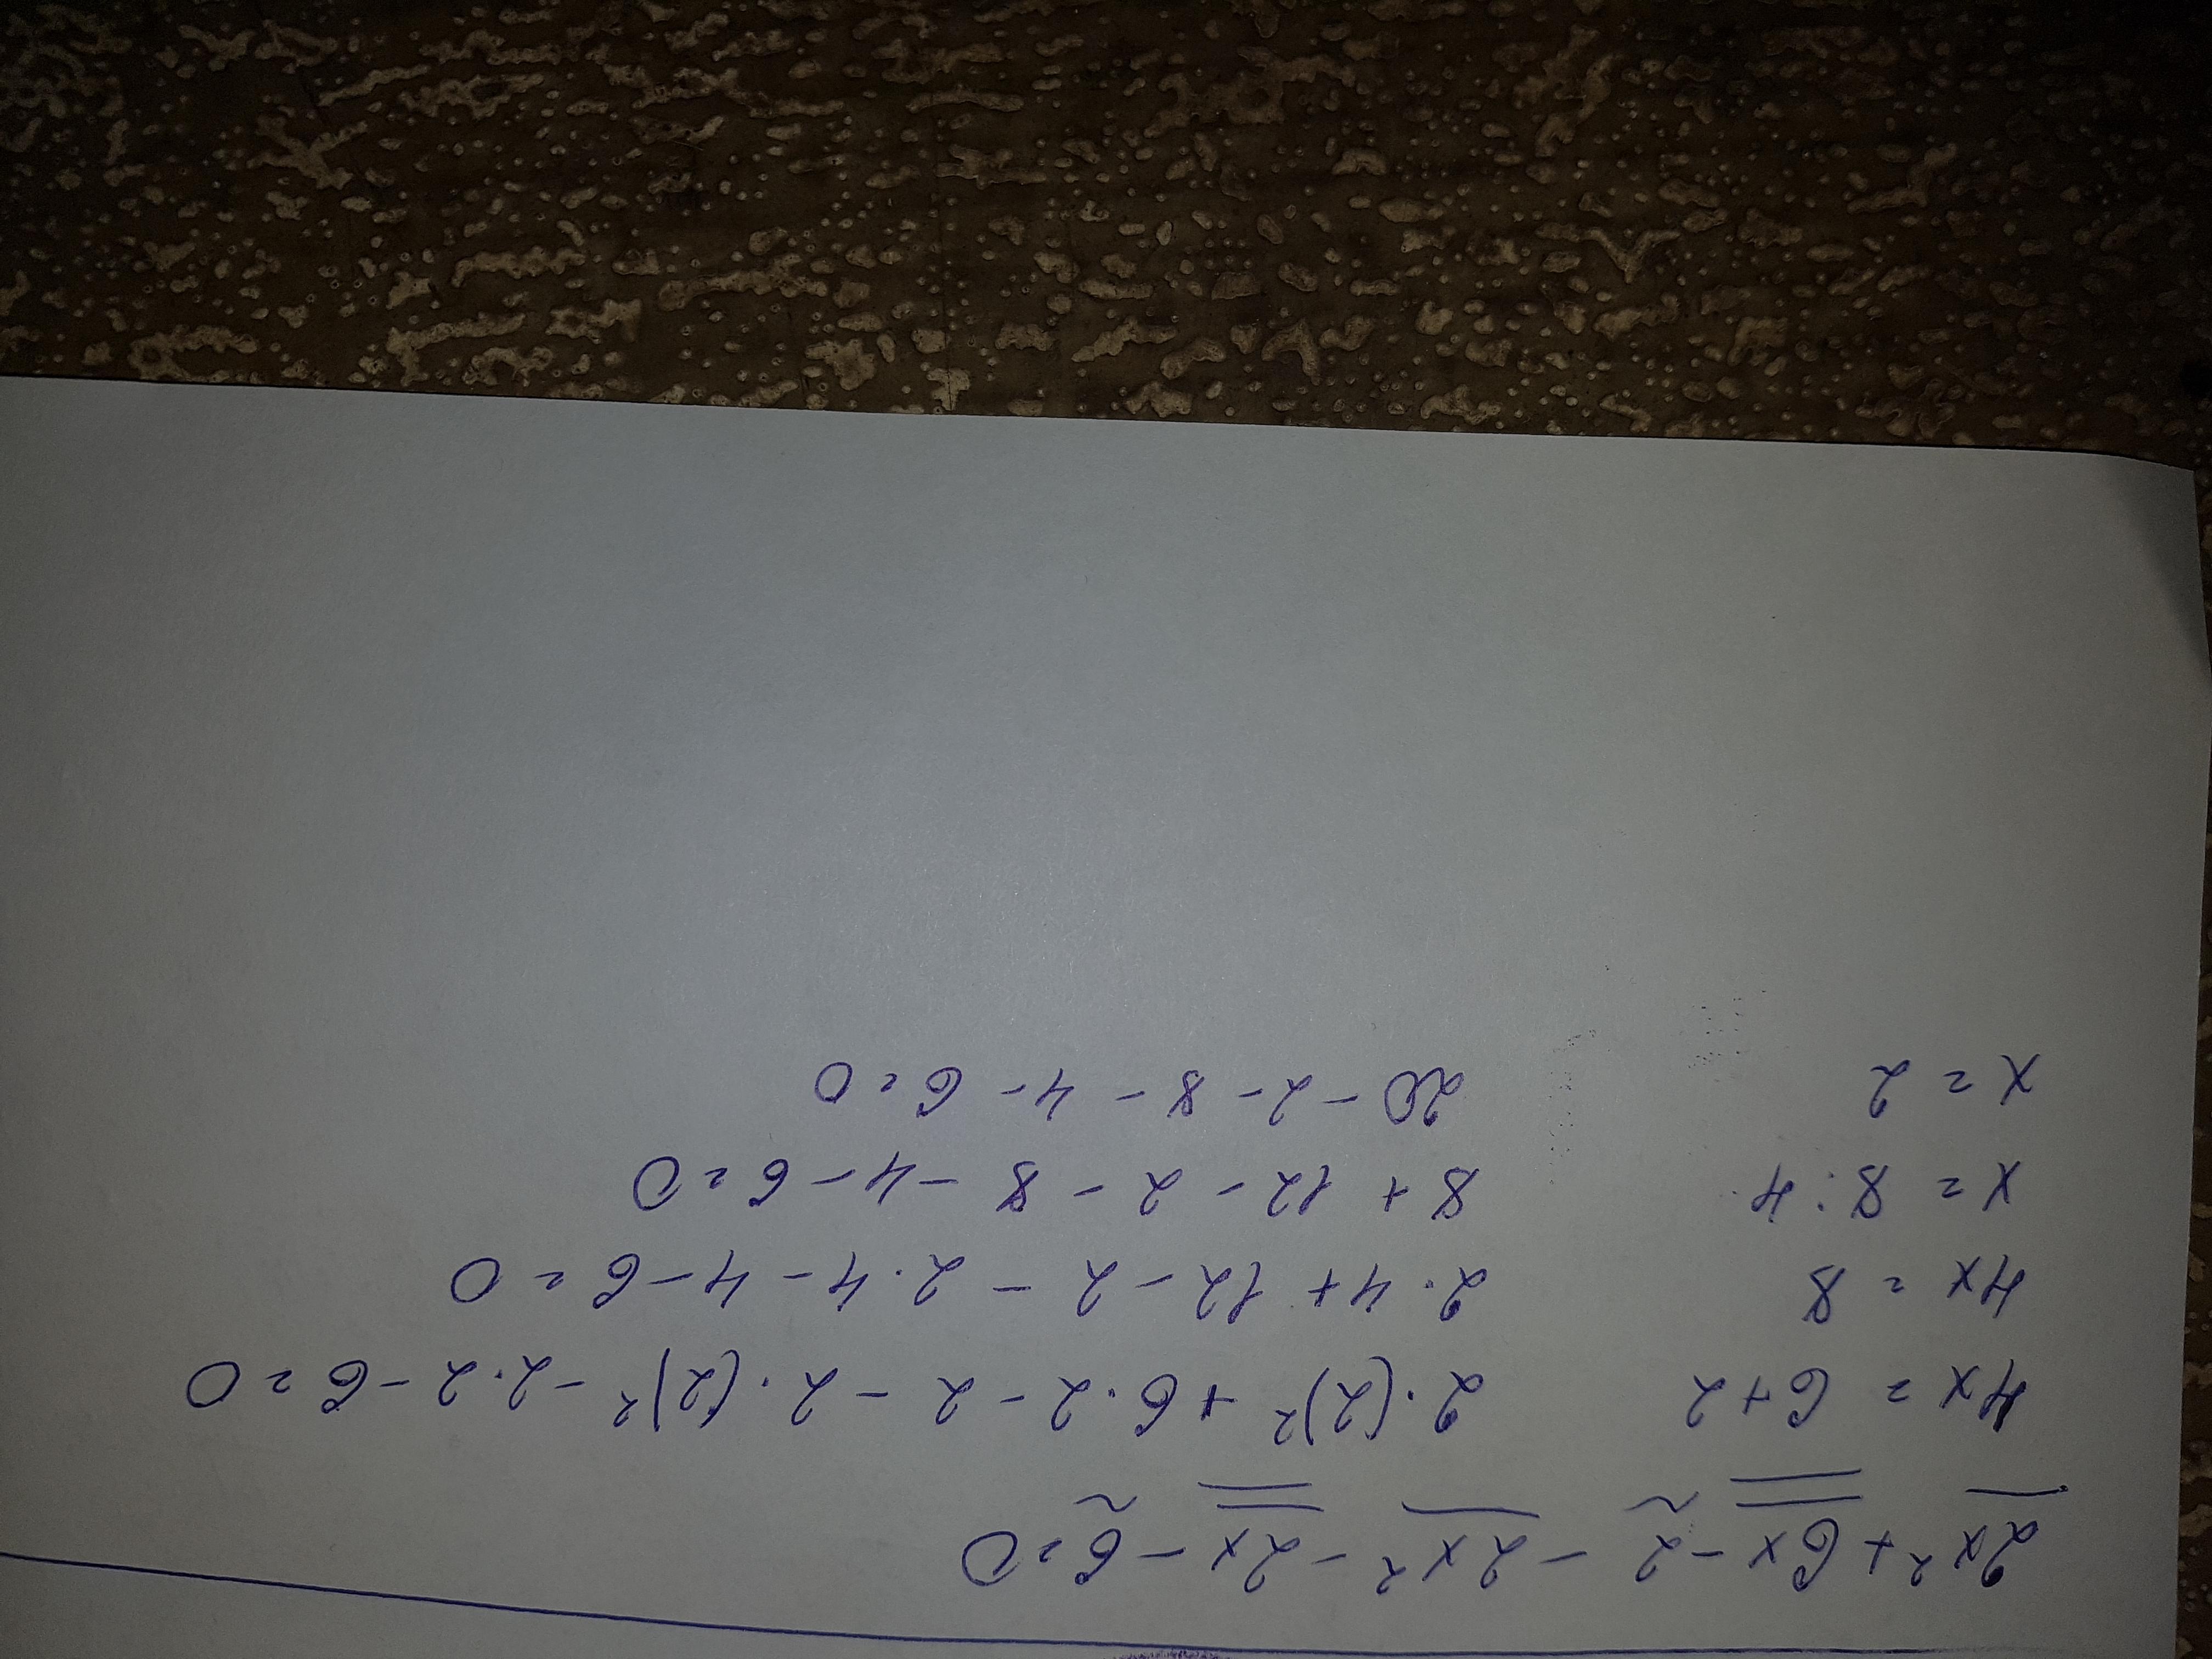 2x² + 6x - 2 - 2x² - 2x - 6 = 0
4x = 6+2
4x = 8
x = 8 : 4
x = 2
2·(2)² + 6·2 - 2 - 2·(2)² - 2·2 - 6 = 0
2·4 + 12 - 2 - 2·4 - 4 - 6 = 0
8 + 12 - 2 - 8 - 4 - 6 = 0
20 - 2 - 8 - 4 - 6 = 0